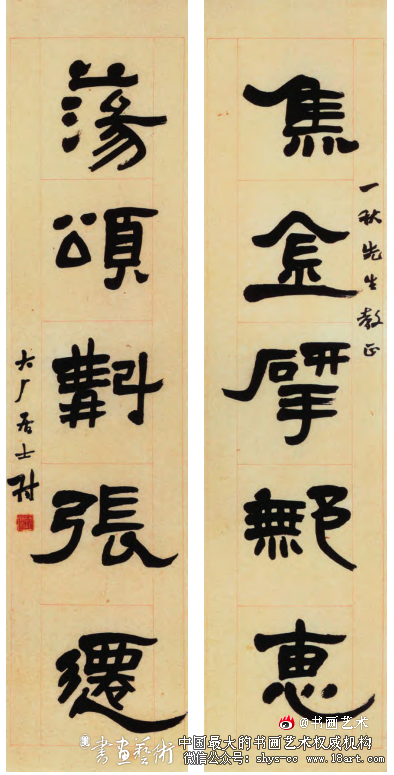 焦金揅鄦惠
一秋先生教正
蕩頌斠張遷
大厂居士
@书画艺术
書画藝術
中国最大的书画艺术权威机构
微信公众号：shys-cc www.18art.cn